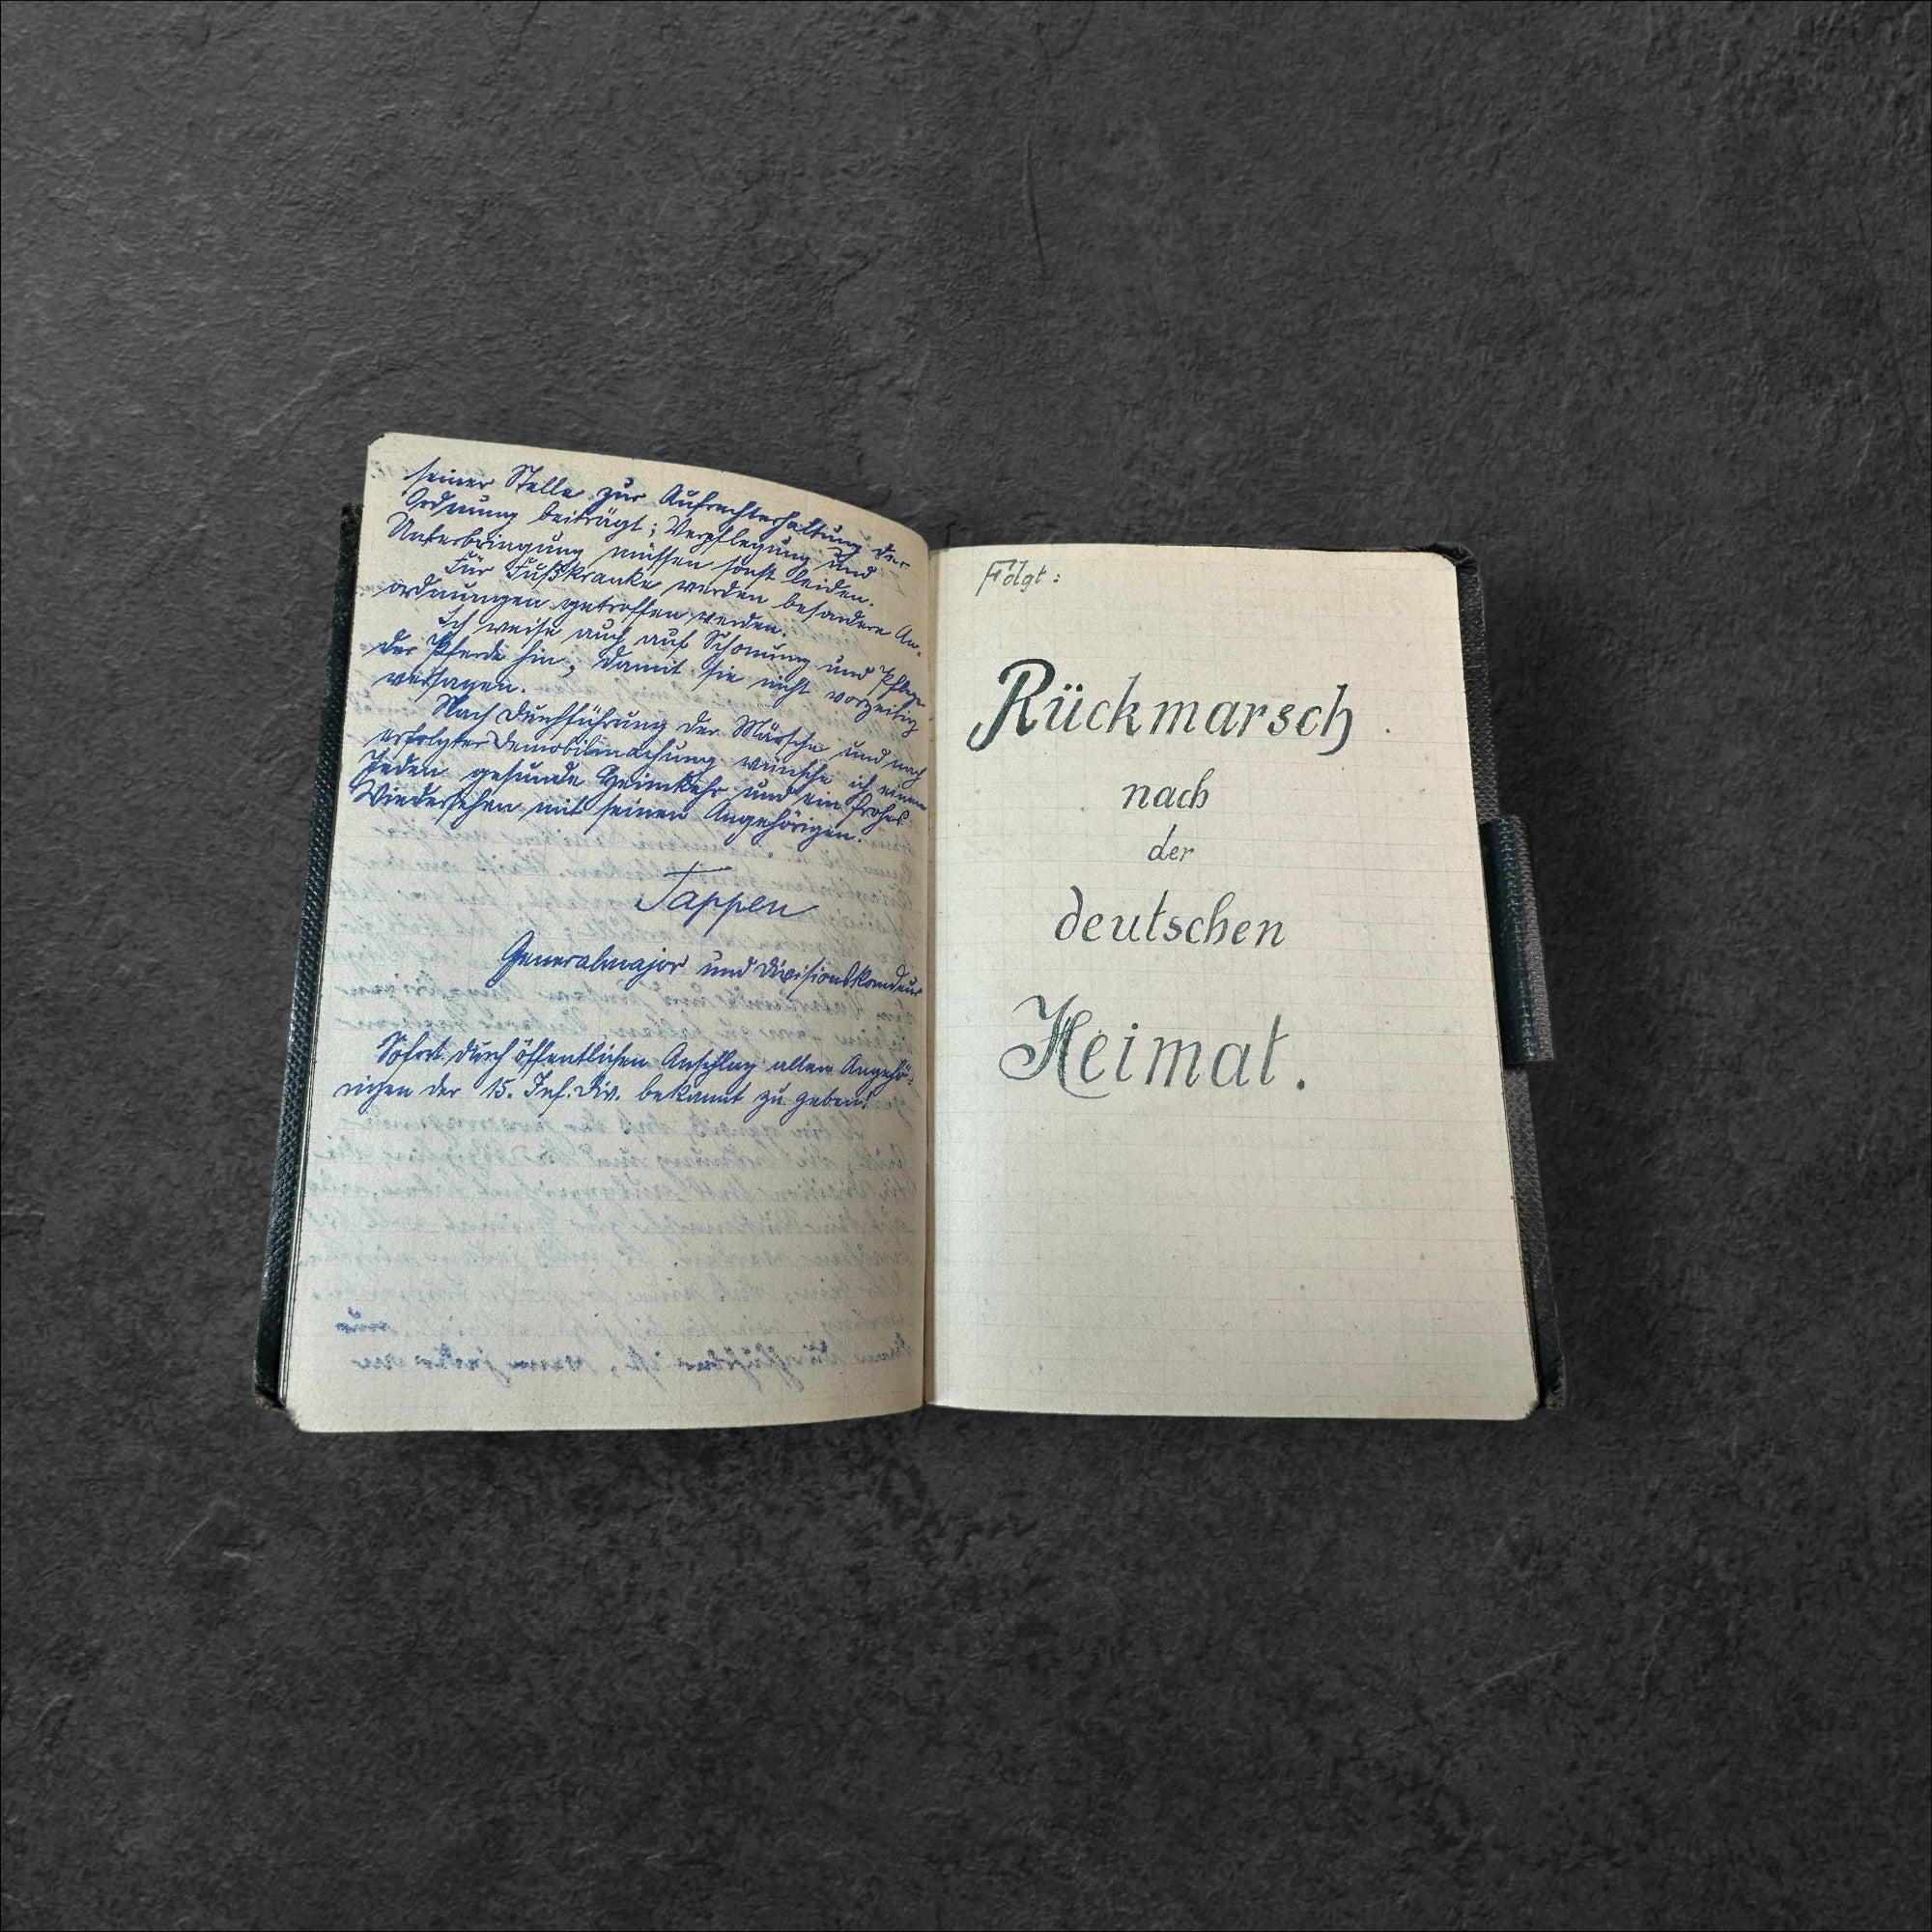 seiner Stelle zur Aufrechterhaltung der
Ordnung beiträgt; Verpflegung und
Unterbringung müssen sonst leiden.
Für Fußkranke werden besondere An-
ordnungen getroffen werden.
Ich weise auch auf Schonung und Pflege
der Pferde hin, damit sie nicht vorzeitig
versagen.
Nach Durchführung der Märsche und nach
erfolgter Demobilmachung wünsche ich einem
Jeden gesunde Heimkehr und ein frohes
Wiedersehen mit seinen Angehörigen.
Tappen
Generalmajor und Divisionskomdeur
Sofort durch öffentlichen Anschlag allen Angehö-
rigen der 15. Inf. Div. bekannt zu geben!
Folgt:
Rückmarsch.
nach
der
deutschen
Heimat.